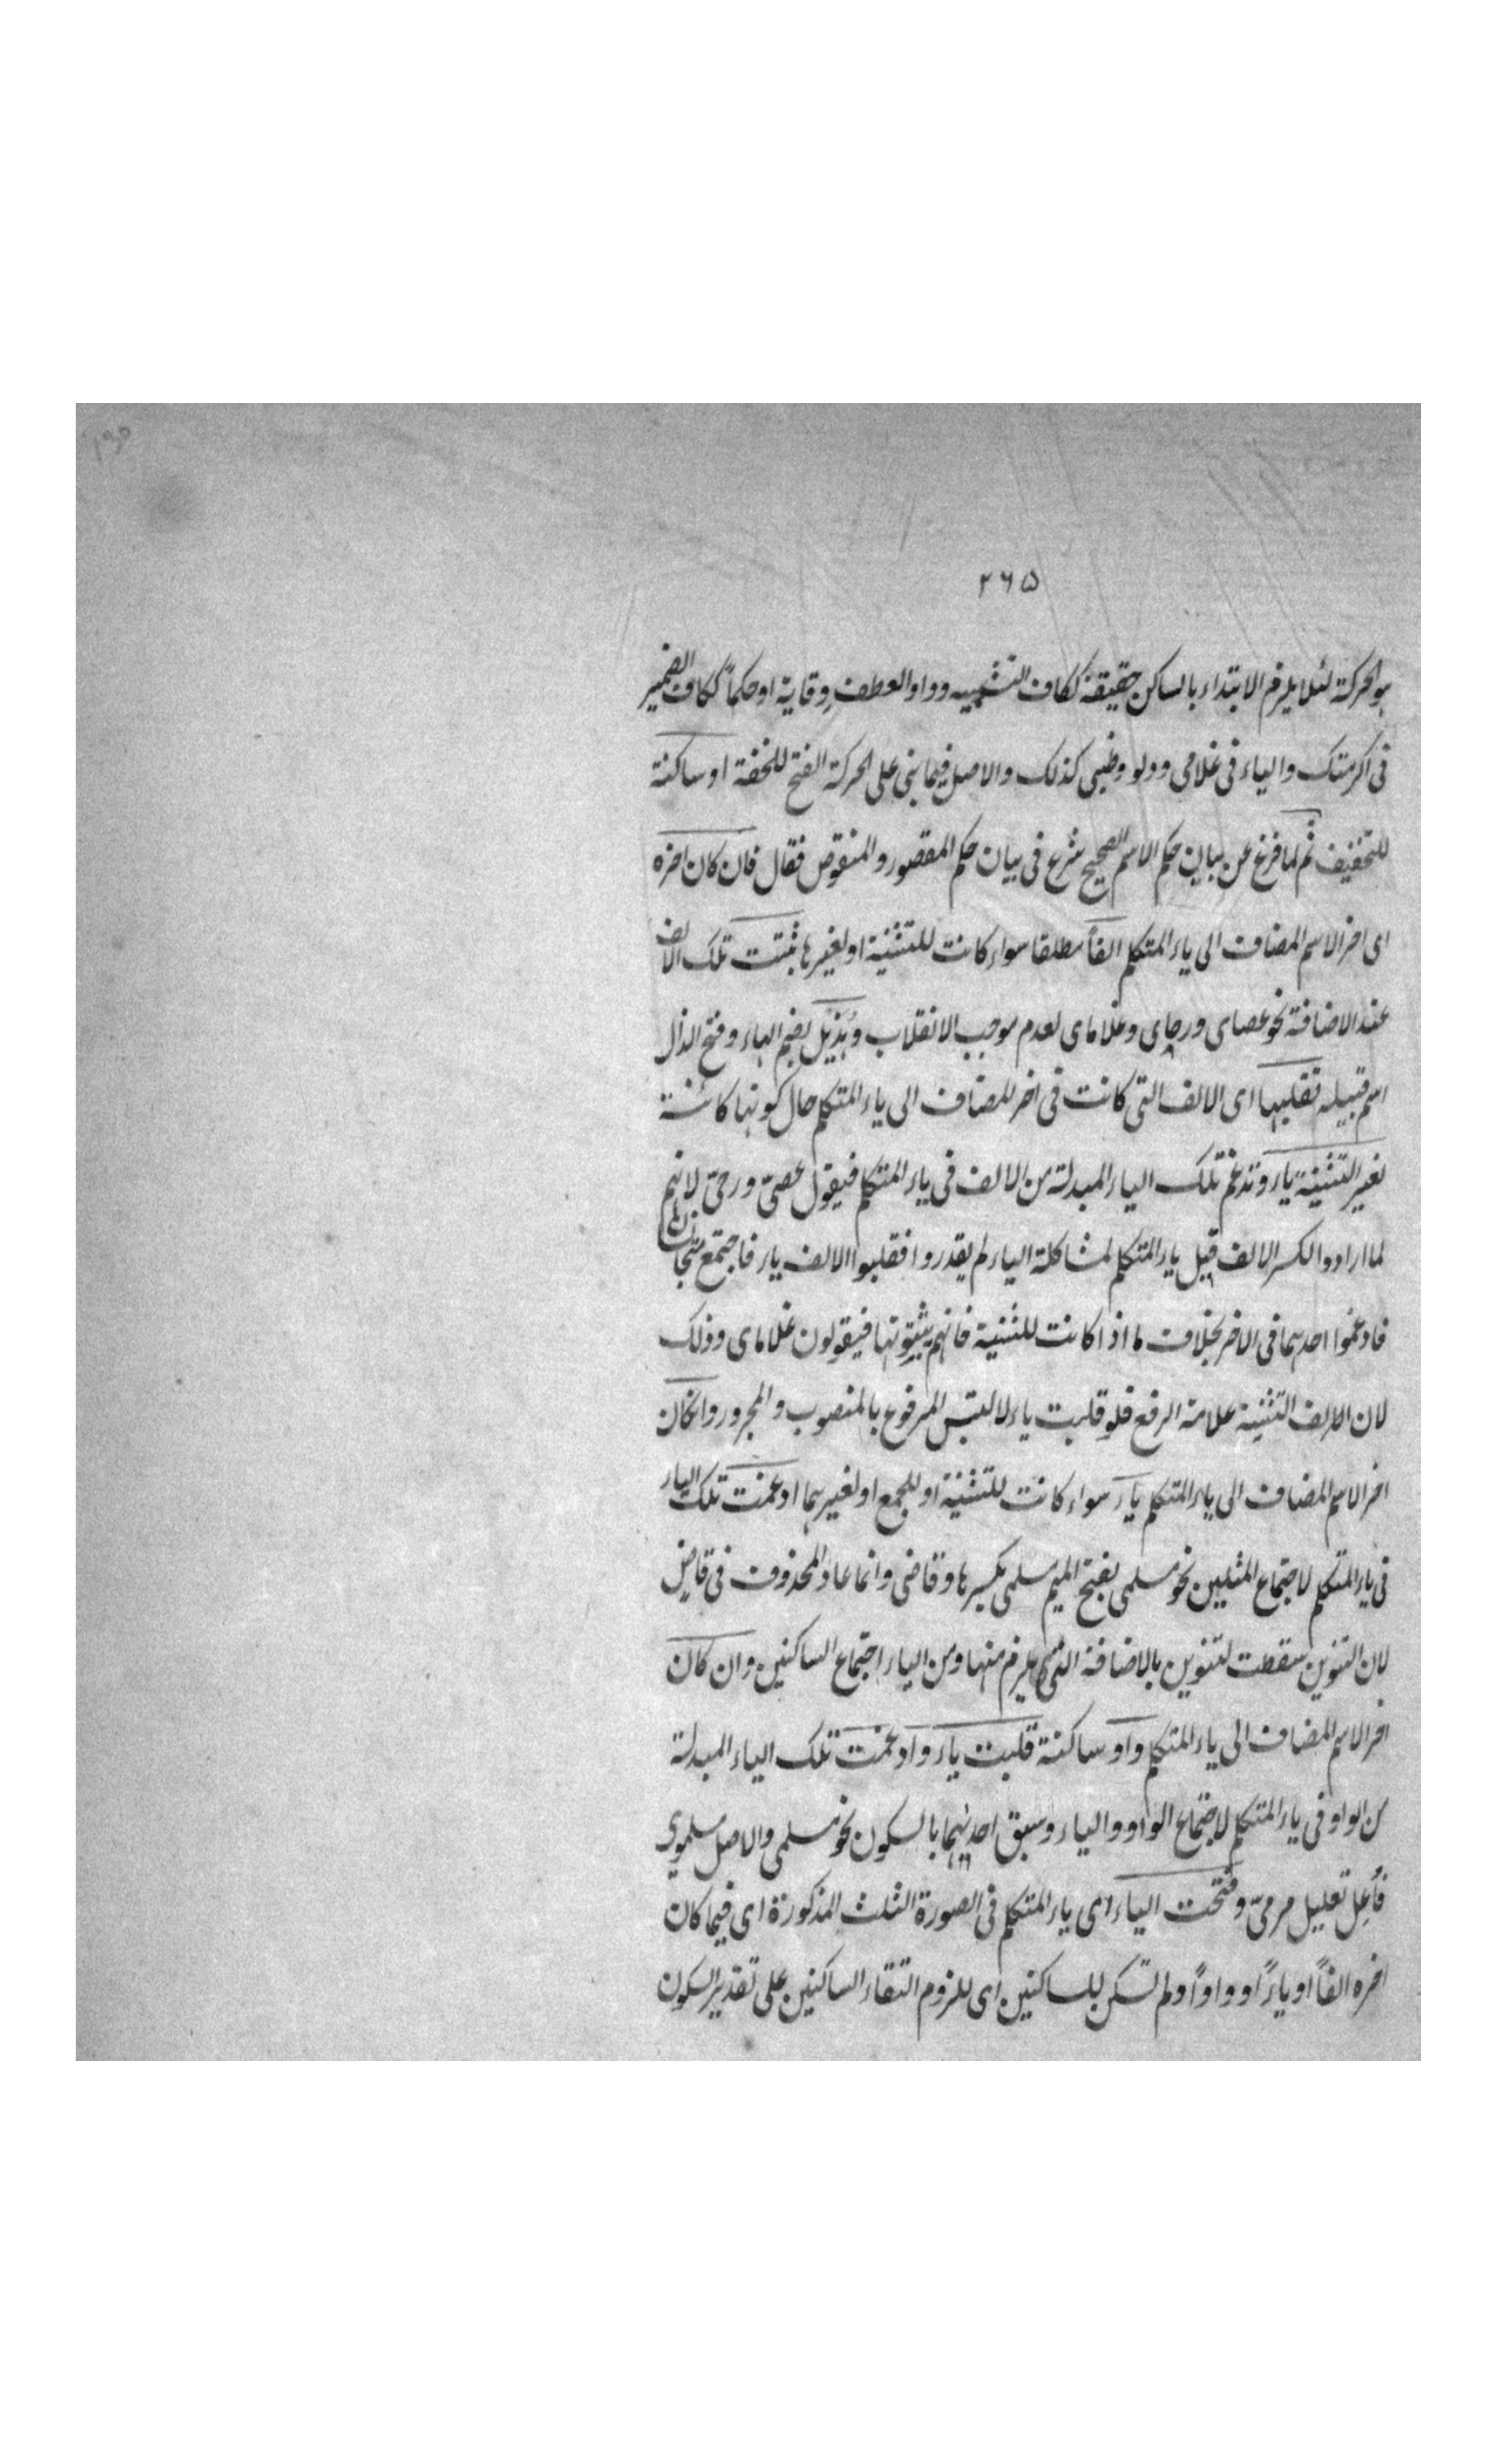 ۲۶۵
هو الحركة لئلا يلزم الابتداء بالساكن حقيقة ككاف التشبيه وواو العطف وقاية او حكماً ككاف الضمير
فى اكرمتك والياء فى غلامى ودلو وظبى كذلك والاصل فيما بنى على الحركة الفتح للخفة او ساكنة
للتخفيف ثم لما فرغ عن بيان حكم الاسم الصحيح شرع فى بيان حكم المقصور والمنقوص فقال فان كان اخره
اى اخر الاسم المضاف الى ياء المتكلم الفاً مطلقا سواء كانت للتثنية او لغيرها ثبتت تلك الالف
عند الاضافة نحو عصاى ورحاى وغلاماى لعدم موجب الانقلاب وهُذَيْل بضم الهاء وفتح الذال
اسم قبيلة تقلبها اى الالف التى كانت فى اخر المضاف الى ياء المتكلم حال كونها كائنة
لغير التثنية ياء وتدغم تلك الياء المبدلة من الالف فى ياء المتكلم فيقول عصىّ ورحىّ لانهم
لما ارادوا لكسر الالف قبل ياء المتكلم لمشاكلة الياء لم يقدروا فقلبوا الالف ياء فاجتمع متجانسان
فادغموا احدهما فى الاخر بخلاف ما اذا كانت للتثنية فانهم يثبتونها فيقولون غلاماى وذلك
لان الالف التثنية علامة الرفع فلو قلبت ياء لالتبس المرفوع بالمنصوب والمجرور وان كان
اخر الاسم المضاف الى ياء المتكلم ياء سواء كانت للتثنية او للجمع او لغيرهما ادغمت تلك الياء
فى ياء المتكلم لاجتماع المثلين نحو مسلمى بفتح الميم مسلمى بكسرها وقاضى وانما عاد المحذوف فى قاضٍ
لان التنوين سقطت لتنوين بالاضافة التى يلزم منها ومن الياء اجتماع الساكنين وان كان
اخر الاسم المضاف الى ياء المتكلم واو ساكنة قلبت ياء وادغمت تلك الياء المبدلة
من الواو فى ياء المتكلم لاجتماع الواو والياء وسبق احديهما بالسكون نحو مسلمى والاصل مسلموى
فأُعِل تعليل مرمىّ وفتحت الياء اى ياء المتكلم فى الصورة الثلث المذكورة اى فيما كان
اخره الفاً او ياءً او واواً ولم تسكن للساكنين اى للزوم التقاء الساكنين على تقدير السكون